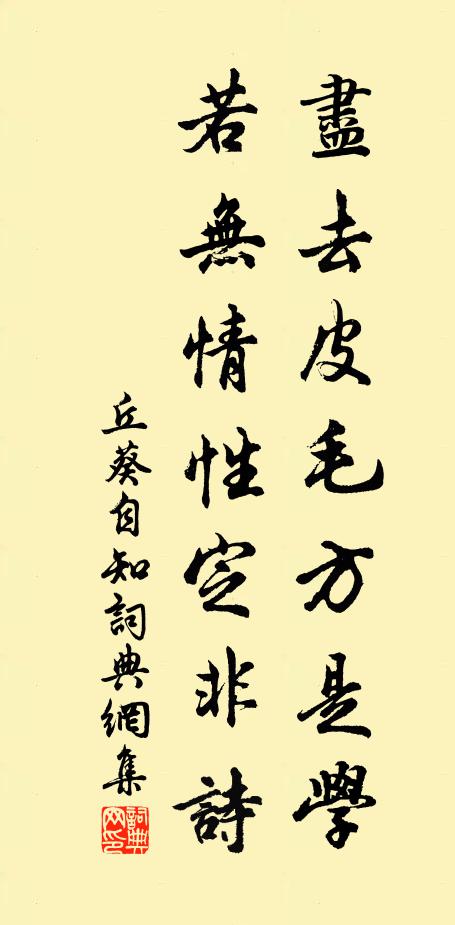 盡去皮毛方是學
若無情性定非詩
丘葵自知詞典網集
詞典網印